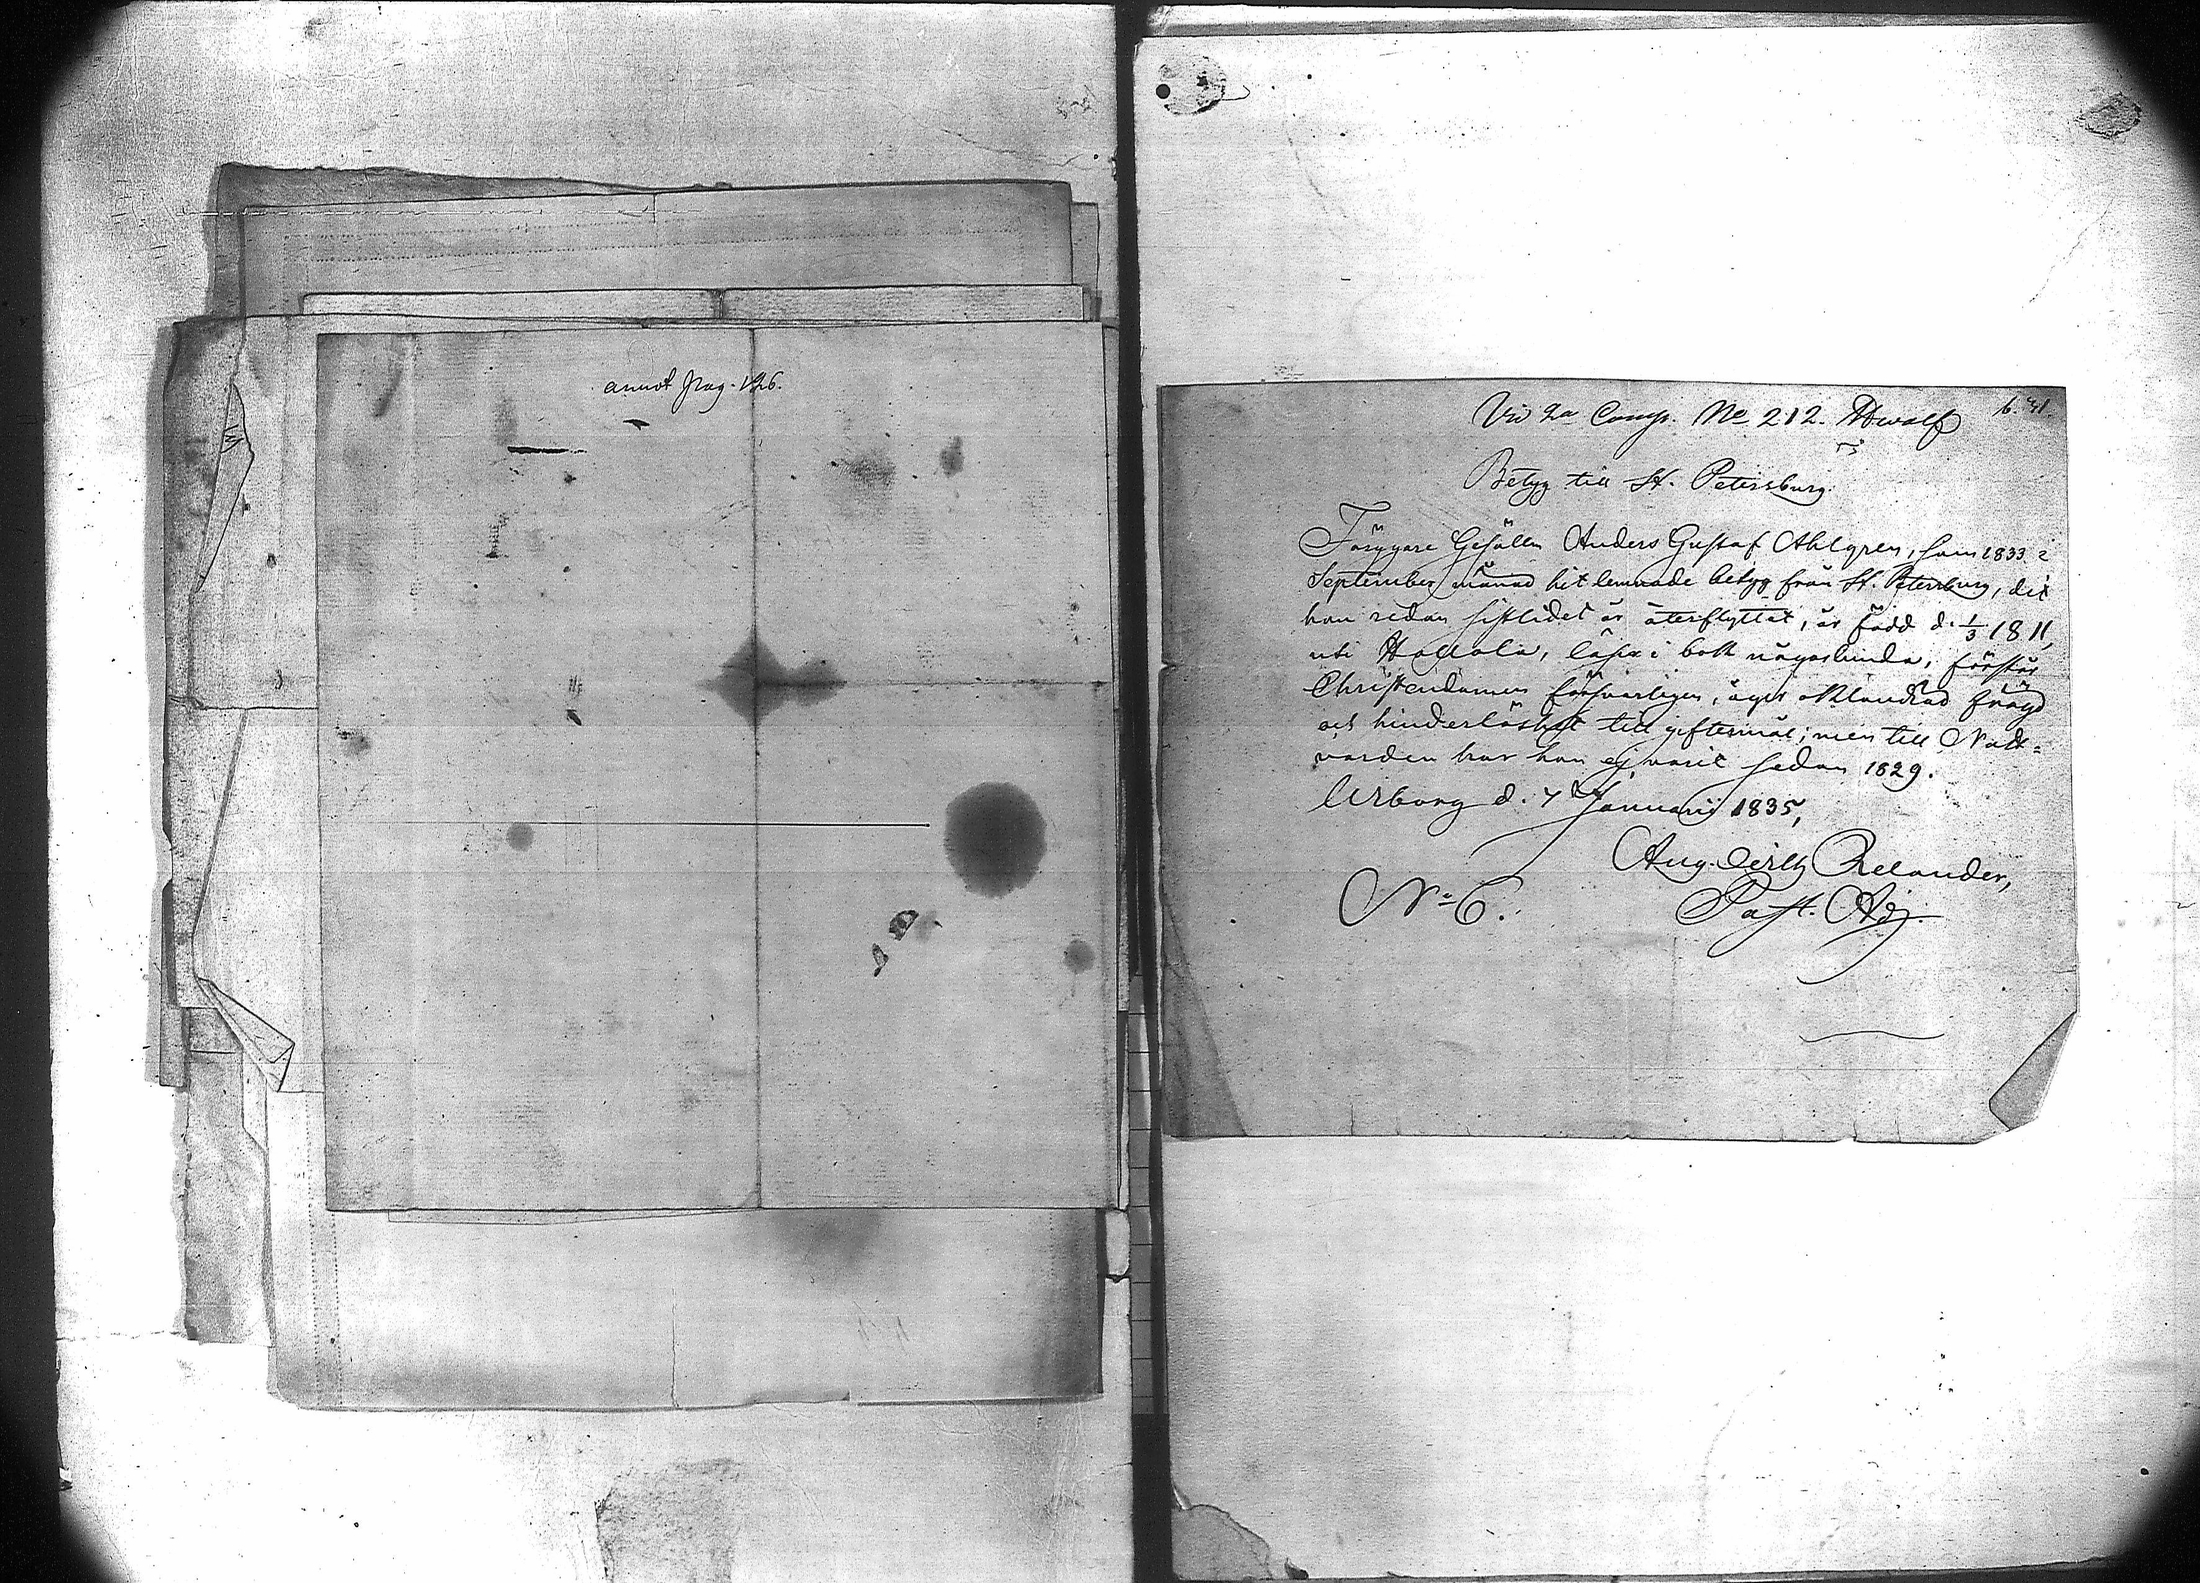 annot pag. 126.
6. 41.
Vid 2a Comp. No 212. Ahwolf
Betyg till St. Petersburg.
Färgare Gesällen Anders Gustaf Ahlgren, som 1833 i
September månad hit lemnade betyg från St. Petersburg, dit
han redan sistlidet år återflyttat, är född d. 1/3 1811,
uti Hollola, läser i bok någorlunda, förstår
Christendomen försvarligen, äger oklandrad frägd
och hinderlöshet till giftermål; men till Natt=
varden har han ej varit sedan 1829.
Wiborg d. 7 Januarii 1835,
Aug. Relander,
No 6. Past. Adj.